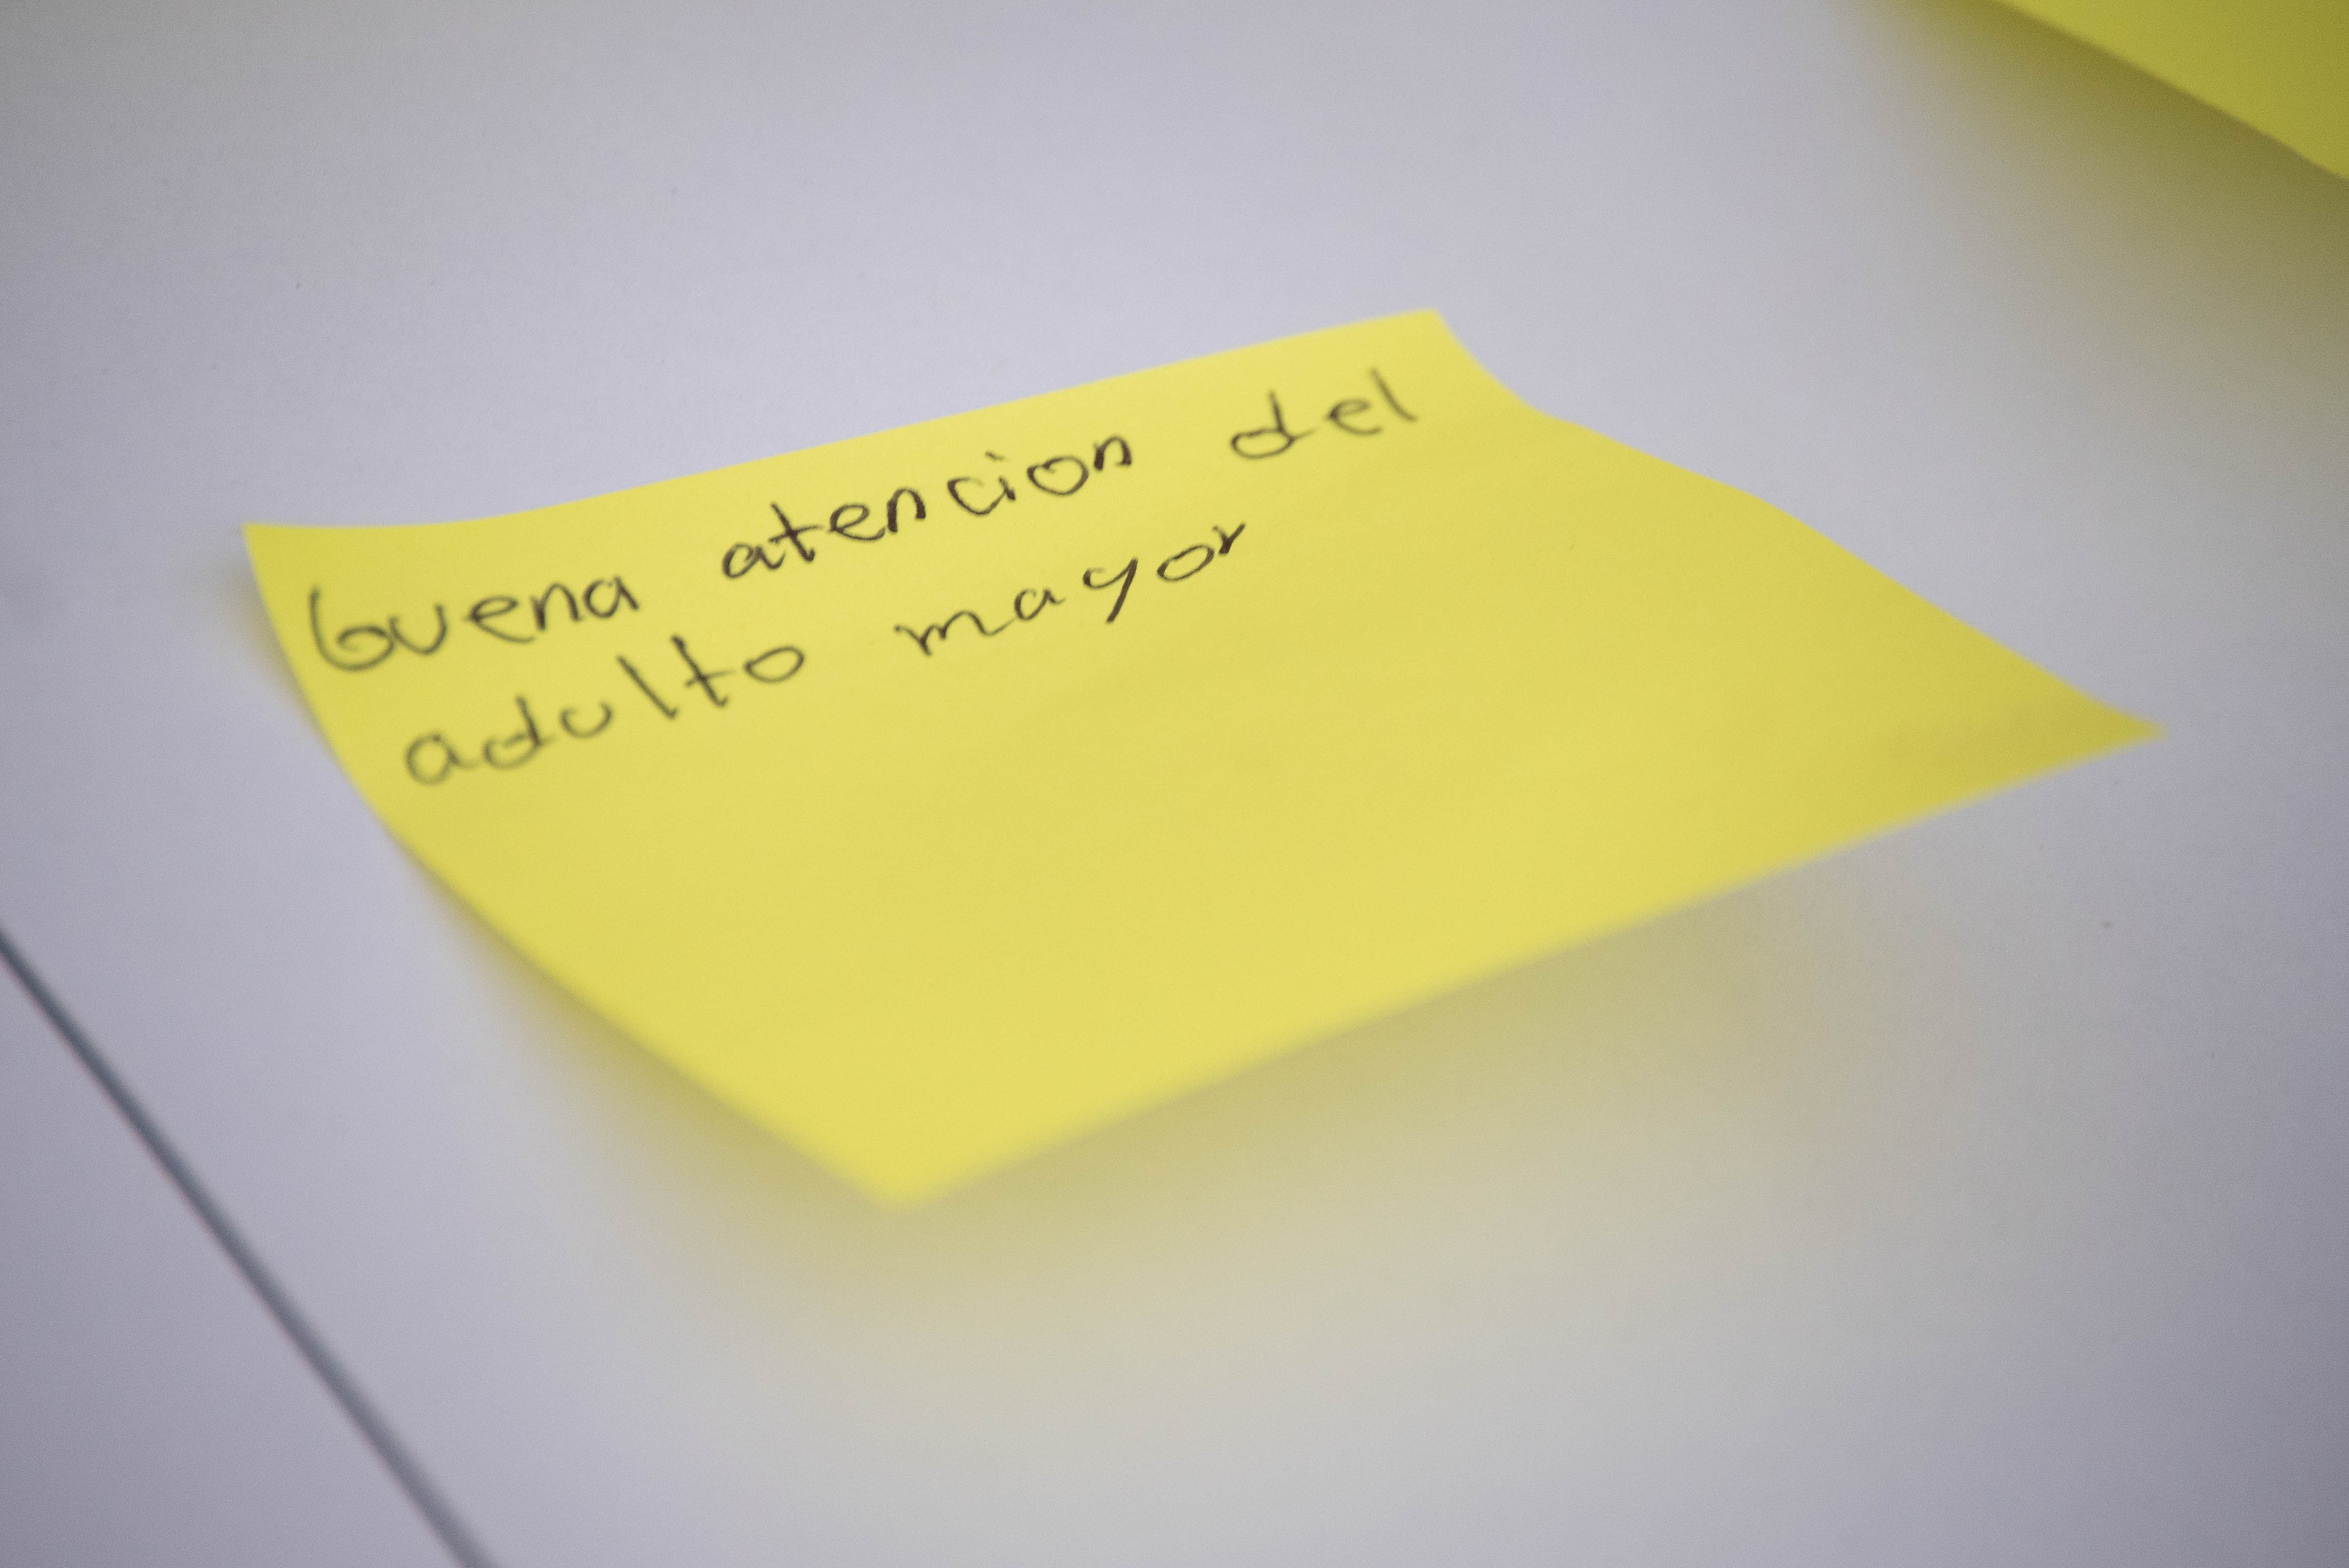 buena atencion del
adulto mayor